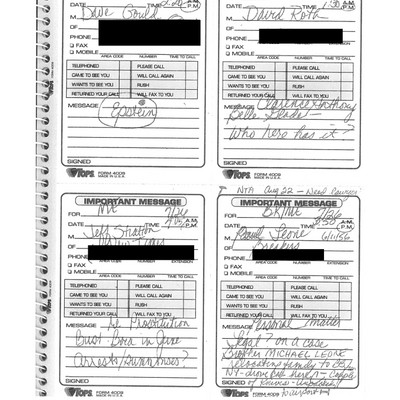 Dave Gould
PHONE
FAX
MOBILE
AREA CODE NUMBER TIME TO CALL
TELEPHONED PLEASE CALL
CAME TO SEE YOU WILL CALL AGAIN
WANTS TO SEE YOU RUSH
RETURNED YOUR CALL WILL FAX TO YOU
MESSAGE
Epstein
SIGNED
TOPS FORM 4009
MADE IN U.S.A.
David Roth
OF
PHONE
FAX
MOBILE
AREA CODE NUMBER TIME TO CALL
TELEPHONED PLEASE CALL
CAME TO SEE YOU WILL CALL AGAIN
WANTS TO SEE YOU RUSH
RETURNED YOUR CALL WILL FAX TO YOU
MESSAGE Clarence Anthony
Belle Glade -
Who here has it?
SIGNED
TOPS FORM 4009
MADE IN U.S.A.
IMPORTANT MESSAGE
FOR
DATE 7/26 TIME
M Jeff Stratton
OF
PHONE
AREA CODE NUMBER EXTENSION
FAX
MOBILE
AREA CODE NUMBER TIME TO CALL
TELEPHONED PLEASE CALL
CAME TO SEE YOU WILL CALL AGAIN
WANTS TO SEE YOU RUSH
RETURNED YOUR CALL WILL FAX TO YOU
MESSAGE Re Prostitution
Bust Boca in June
Arrests/Surprises?
SIGNED
TOPS FORM 4009
MADE IN U.S.A.
NTA Aug 22 - Need
IMPORTANT MESSAGE
FOR
DATE 7/26 TIME
M Leone
OF Breakers
PHONE
AREA CODE NUMBER EXTENSION
FAX
MOBILE
AREA CODE NUMBER TIME TO CALL
TELEPHONED PLEASE CALL
CAME TO SEE YOU WILL CALL AGAIN
WANTS TO SEE YOU RUSH
RETURNED YOUR CALL WILL FAX TO YOU
MESSAGE Personal matter
legal? on a case
Brother MICHAEL LEONE
relocating family to
SIGNED
TOPS FORM 4009